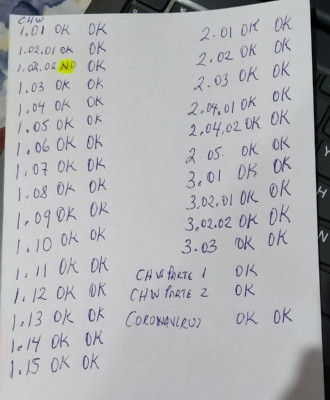 CHW
1.01 OK OK
1.02.01 OK OK
1.02.02 NO OK
1.03 OK OK
1.04 OK OK
1.05 OK OK
1.06 OK OK
1.07 OK OK
1.08 OK OK
1.09 OK OK
1.10 OK OK
1.11 OK OK
1.12 OK OK
1.13 OK OK
1.14 OK OK
1.15 OK OK
2.01 OK OK
2.02 OK OK
2.03 OK OK
2.04.01 OK OK
2.04.02 OK OK
2.05. OK OK
3.01 OK OK
3.02.01 OK OK
3.02.02 OK OK
3.03 OK OK
CHW PARTE 1 OK
CHW PARTE 2 OK
CORONAVIRUS OK OK